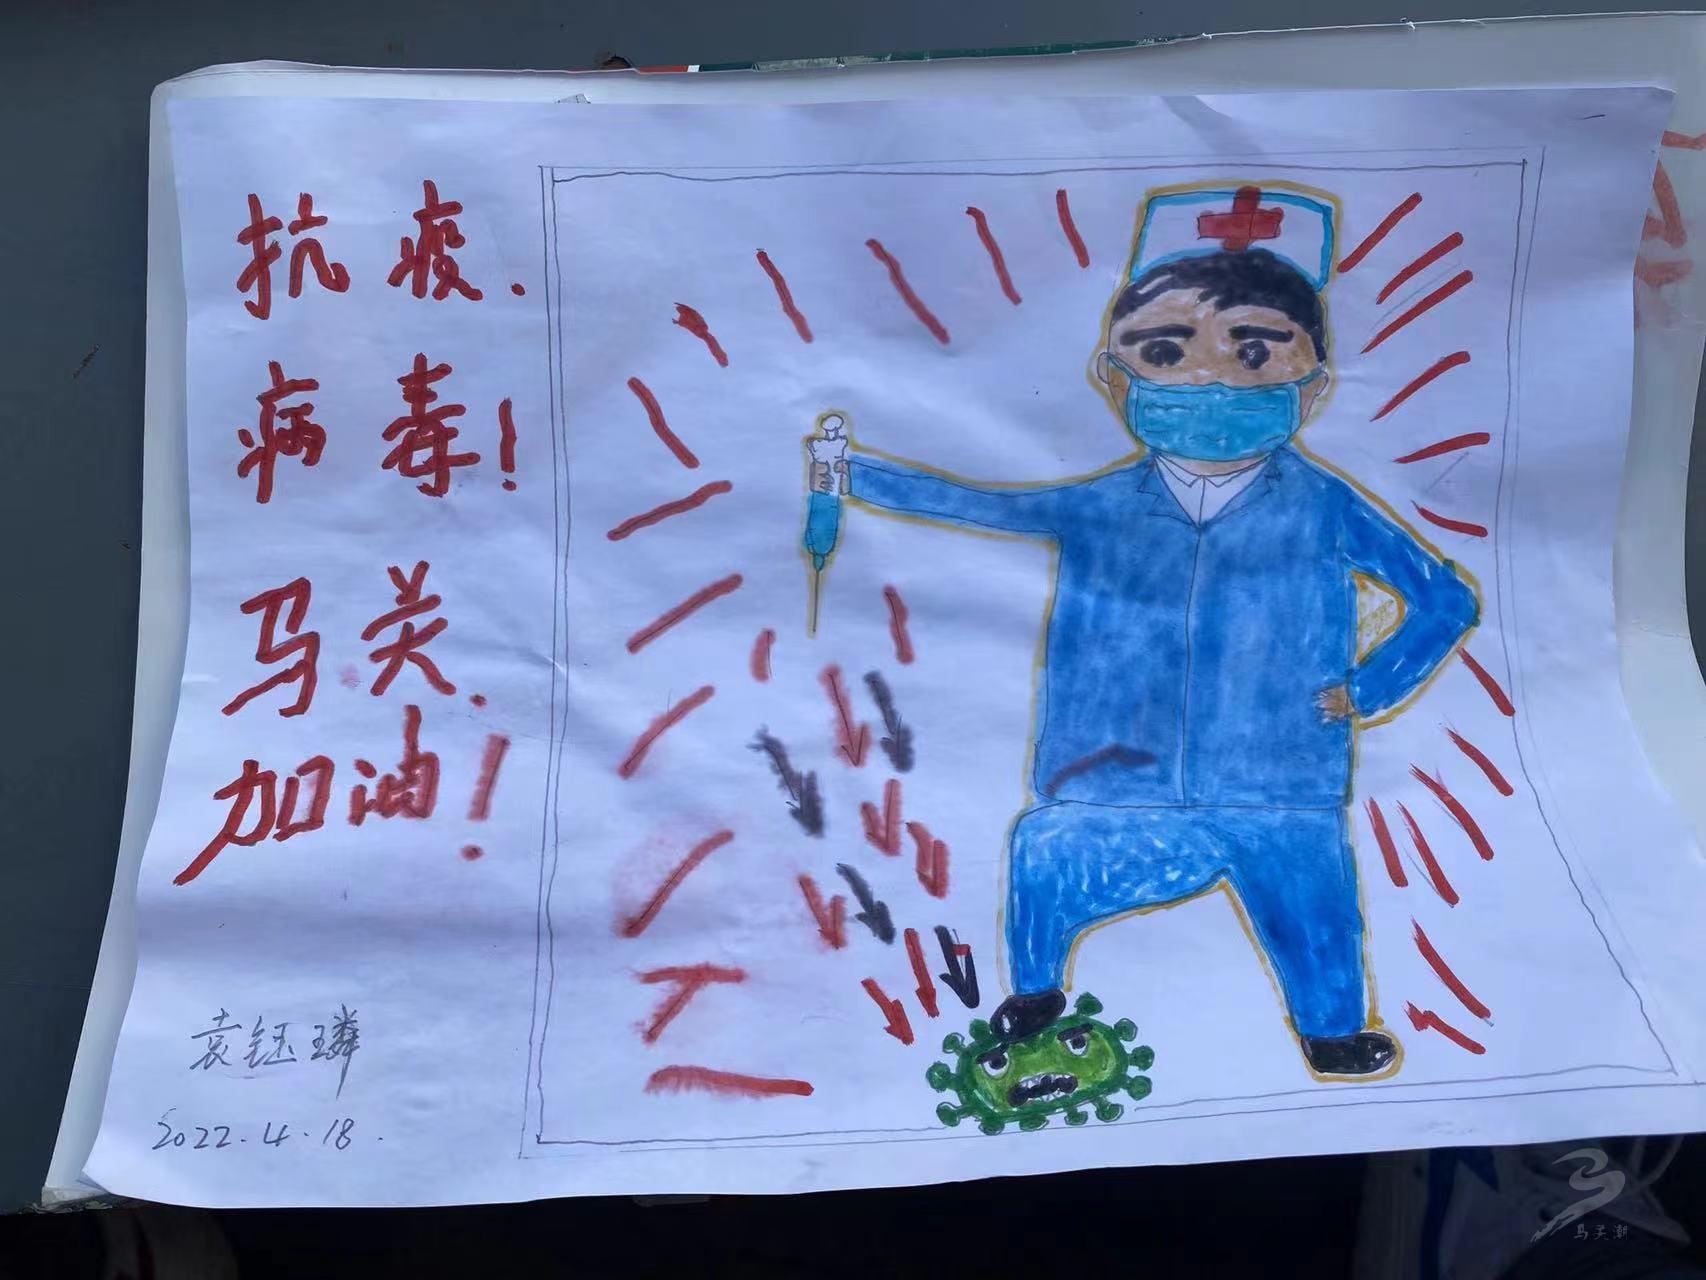 抗疫.
病毒!
马关.
加油!
袁钰璘
2022.4.18.
马关潮